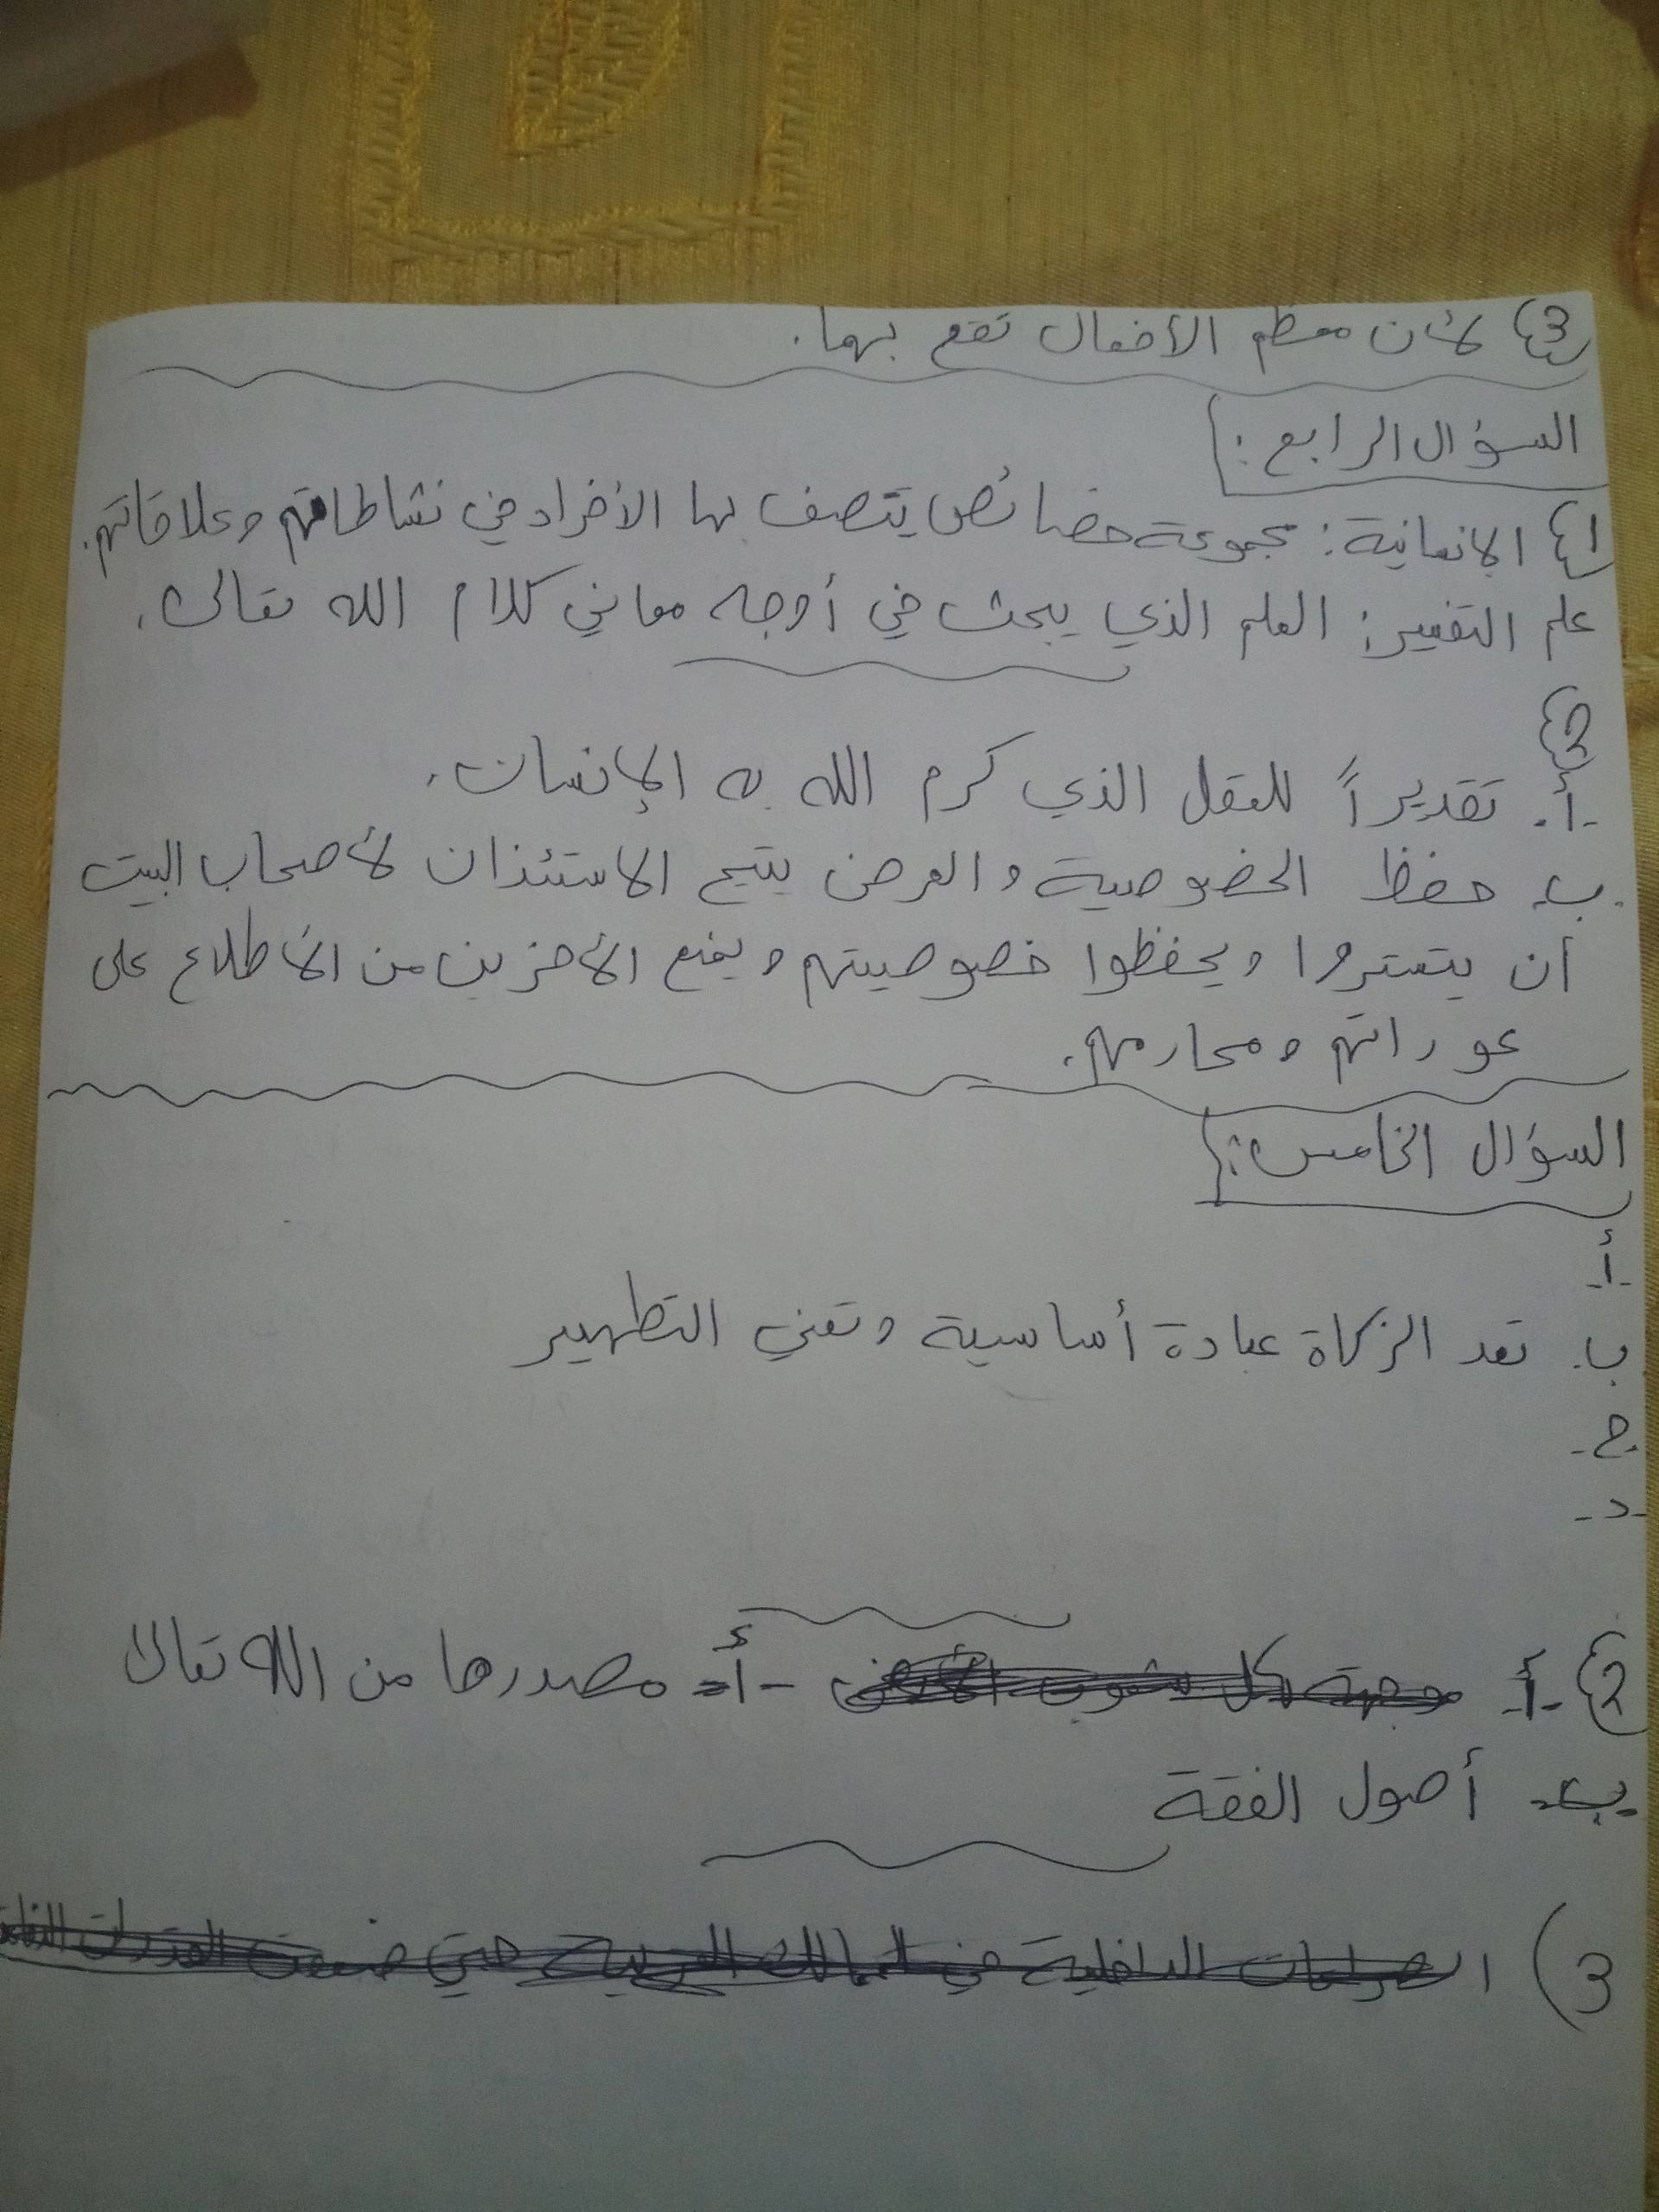 3) لأن معظم الأفعال تقع بهما.
السؤال الرابع:
1) الإنسانية: مجموعة خصائص يتصف بها الأفراد في نشاطاتهم وعلاقاتهم.
علم التفسير: العلم الذي يبحث في أوجه معاني كلام الله تعالى.
أ. تقديراً للعقل الذي كرم الله به الإنسان.
ب. حفظ الخصوصية والعرض يتيح الاستئذان لأصحاب البيت
أن يتستروا ويحفظوا خصوصيتهم ويمنع الأخرين من الأطلاع على
عوراتهم ومحارمهم.
السؤال الخامس:
أ-
ب. تعد الزكاة عبادة أساسية وتعني التطهير
ج-
د-
2) أ- أ- مصدرها من الله تعالا
ب- أصول الفقة
3) الصراعات الداخلية في الممالك العربية حتي ضعفت